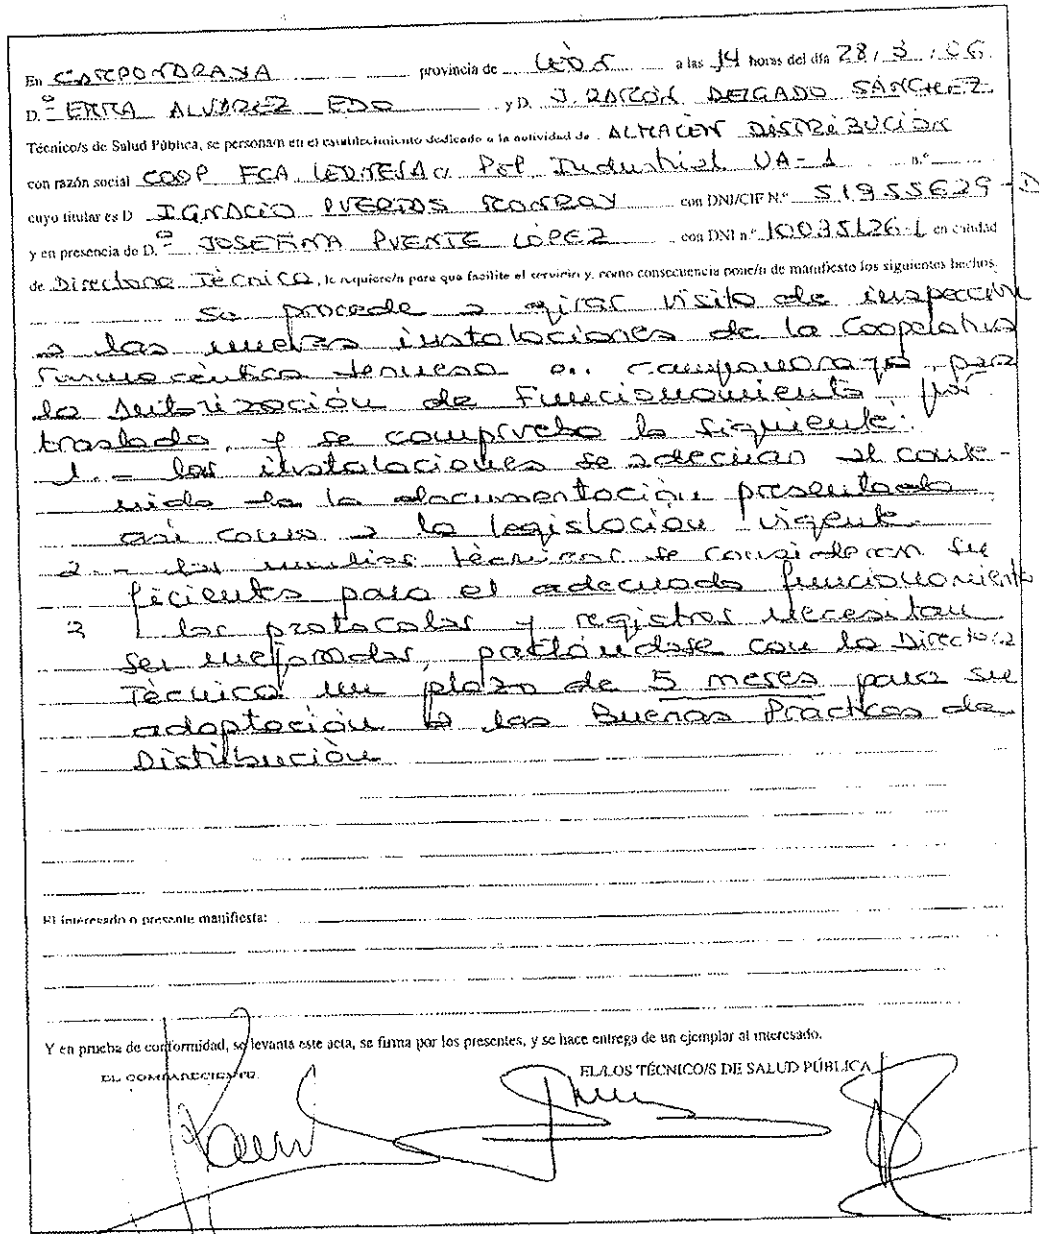 En CAMPONARAYA provincia de LEÓN a las 14 horas del día 28 / 3 / 06
D.ª EMMA ALVAREZ EDO y D. J. RAMÓN DELGADO SÁNCHEZ
Técnico/s de Salud Pública, se personan en el establecimiento dedicado a la actividad de ALMACEN DISTRIBUCIÓN
con razón social COOP FCA. LEONESA Pol Industrial UA-1 n.º
cuyo titular es D. IGNACIO PUERTAS MONROY con DNI/CIF N.º 51955629-D
y en presencia de D.ª JOSEFINA PUENTE LÓPEZ con DNI n.º 10035126-L en calidad
de Directora Técnica, le requiere/n para que facilite el servicio y, como consecuencia pone/n de manifiesto los siguientes hechos:
Se procede a girar visita de inspección
a las nuevas instalaciones de la Cooperativa
Farmacéutica Leonesa en Camponaraya para
la Autorización de Funcionamiento por
traslado, y se comprueba lo siguiente:
1.- las instalaciones se adecuan al conte-
nido de la documentación presentada
así como a la legislación vigente.
2.- los medios técnicos se consideran su
ficientes para el adecuado funcionamiento
3 los protocolos y registros necesitan
ser mejorados, pactándose con la Directora
Técnica un plazo de 5 meses para su
adaptación a las Buenas Prácticas de
Distribución
El interesado o presente manifiesta:
Y en prueba de conformidad, se levanta este acta, se firma por los presentes, y se hace entrega de un ejemplar al interesado.
EL COMPARECIENTE, EL/LOS TÉCNICO/S DE SALUD PÚBLICA